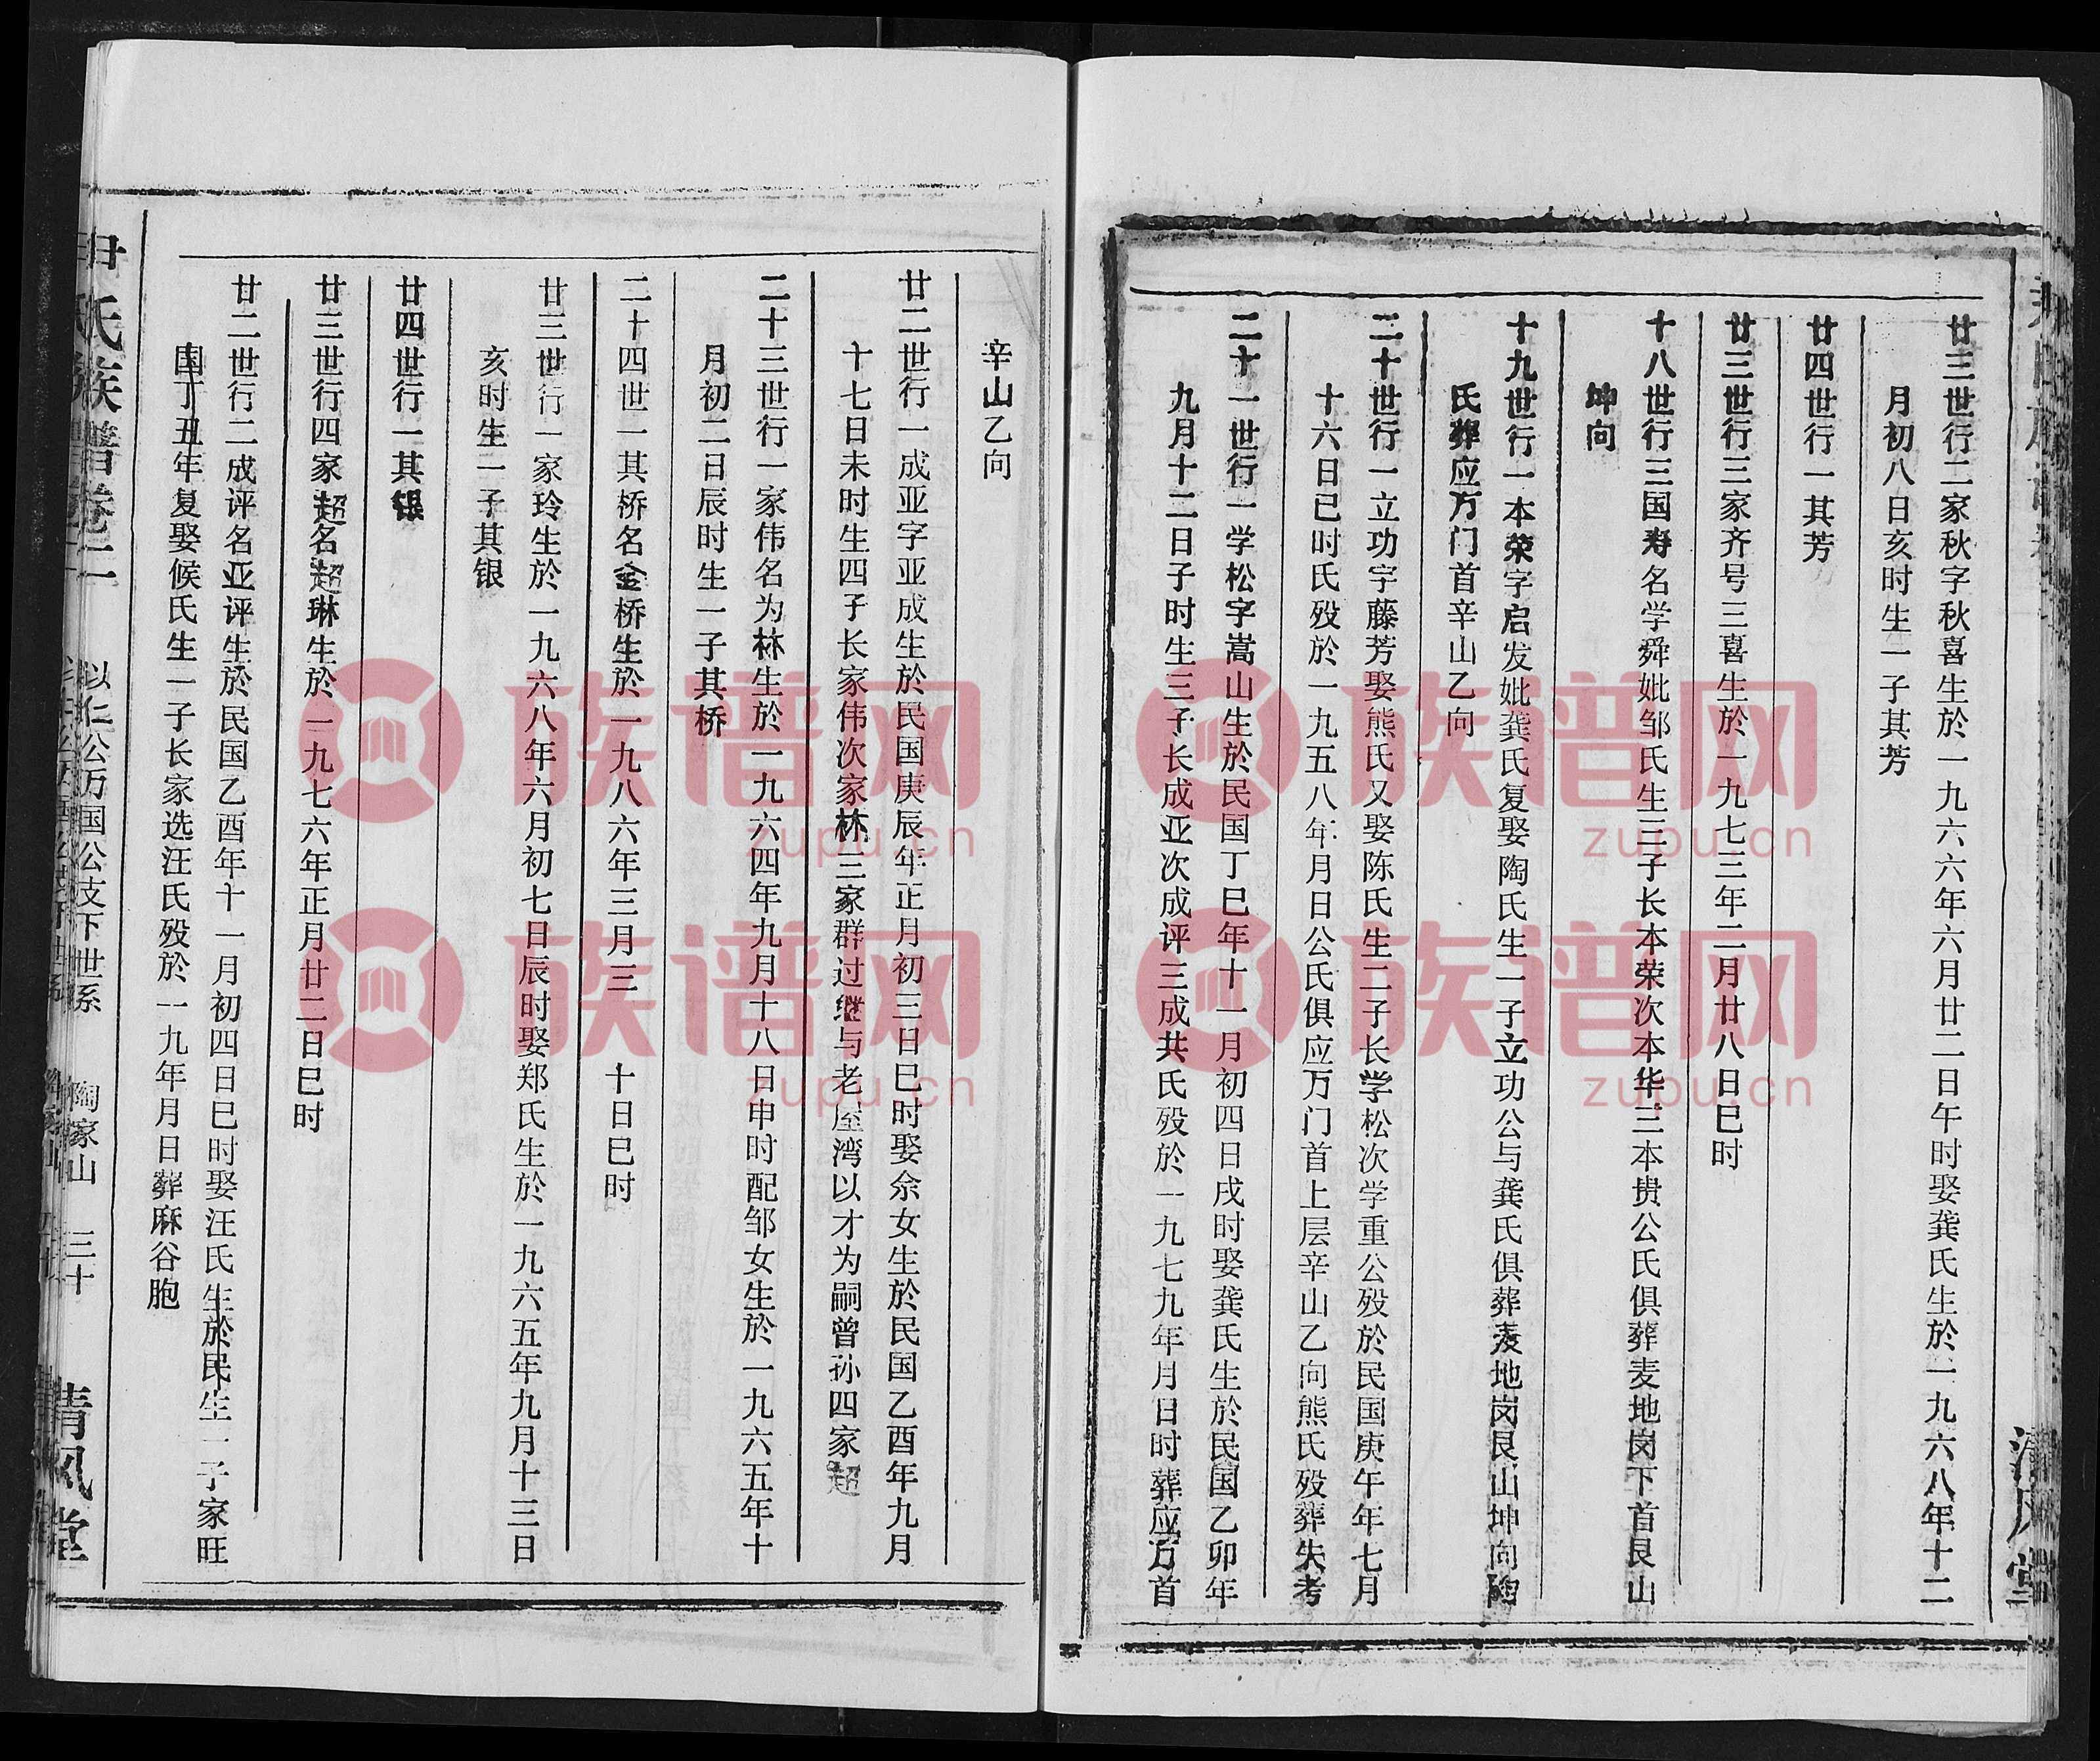 廿三世行二家秋字秋喜生於一九六六年六月廿二日午时娶龚氏生於一九六八年十二
月初八日亥时生一子其芳
廿四世行一其芳
廿三世行三家齐号三喜生於一九七三年二月廿八日巳时
十八世行三国寿名学舜妣邹氏生三子长本荣次本华三本贵公氏俱葬麦地岗下首艮山
坤向
十九世行一本荣字启发妣龚氏复娶陶氏生一子立功公与龚氏俱葬麦地岗艮山坤向陶
氏葬应万门首辛山乙向
二十世行一立功字藤芳娶熊氏又娶陈氏生二子长学松次学重公殁於民国庚午年七月
十六日巳时氏殁於一九五八年月日公氏俱应万门首上层辛山乙向熊氏殁葬失考
二十一世行一学松字嵩山生於民国丁巳年十一月初四日戌时娶龚氏生於民国乙卯年
九月十二日子时生三子长成亚次成评三成共氏殁於一九七九年月日时葬应万首
清风堂
辛山乙向
廿二世行一成亚字亚成生於民国庚辰年正月初三日巳时娶余女生於民国乙酉年九月
十七日未时生四子长家伟次家林三家群过继与老屋湾以才为嗣曾孙四家超
二十三世行一家伟名为林生於一九六四年九月十八日申时配邹女生於一九六五年十
月初二日辰时生一子其桥
二十四世一其桥名金桥生於一九八六年三月三 十日巳时
廿三世行一家玲生於一九六八年六月初七日辰时娶郑氏生於一九六五年九月十三日
亥时生一子其银
廿四世行一其银
廿三世行四家超名超琳生於一九七六年正月廿二日巳时
廿二世行二成评名亚评生於民国乙酉年十一月初四日巳时娶汪氏生於民生一子家旺
国丁丑年复娶候氏生一子长家选汪氏殁於一九年月日葬麻谷胞
尹氏族谱卷二 以仁公万国公支下世系 陶家山 三十 清风堂
族谱网
zupu.cn
族谱网
zupu.cn
族谱网
zupu.cn
族谱网
zupu.cn